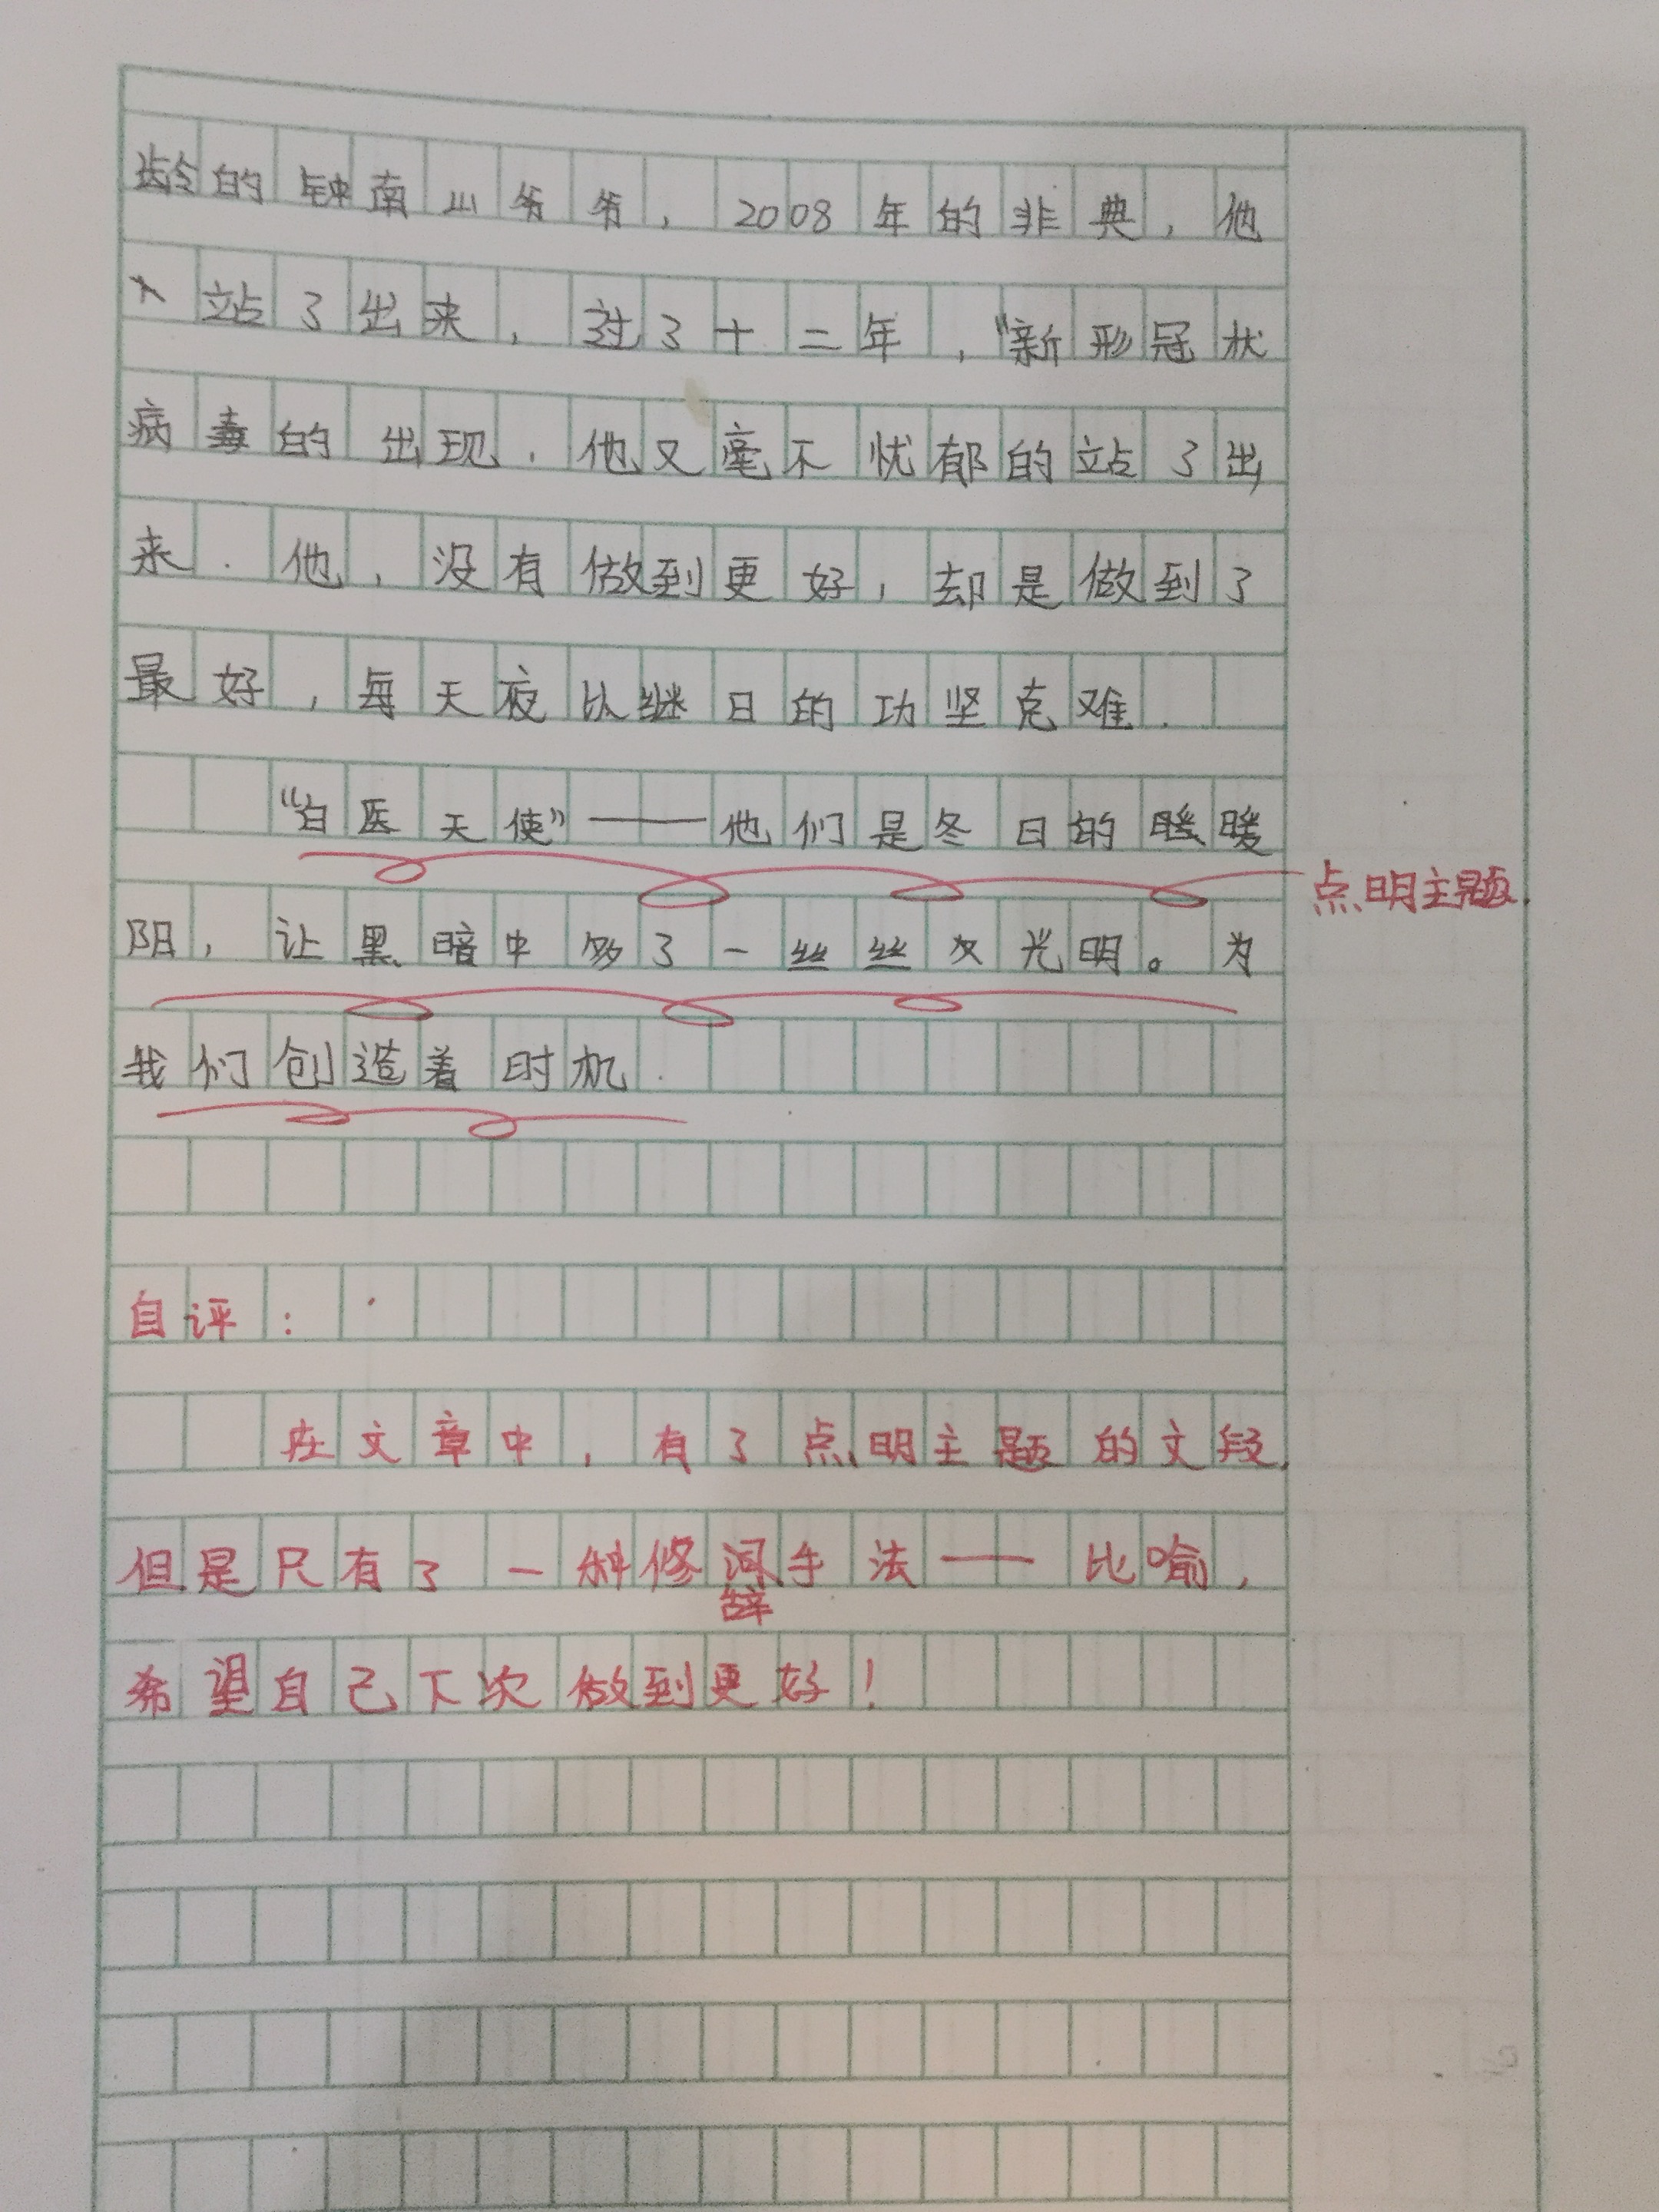 龄的钟南山爷爷，2008年的非典，他
站了出来，过了十二年，“新形冠状
病毒的出现，他又毫不忧郁的站了出
来．他，没有做到更好，却是做到了
最好，每天夜以继日的功坚克难．
“白医天使”——他们是冬日的暖暖
点明主题.
阳，让黑暗中多了一丝丝光明。为
我们创造着时机．
自评：
在文章中，有了点明主题的文段，
但是只有了一种修手法——比喻，
辞
希望自己下次做到更好！